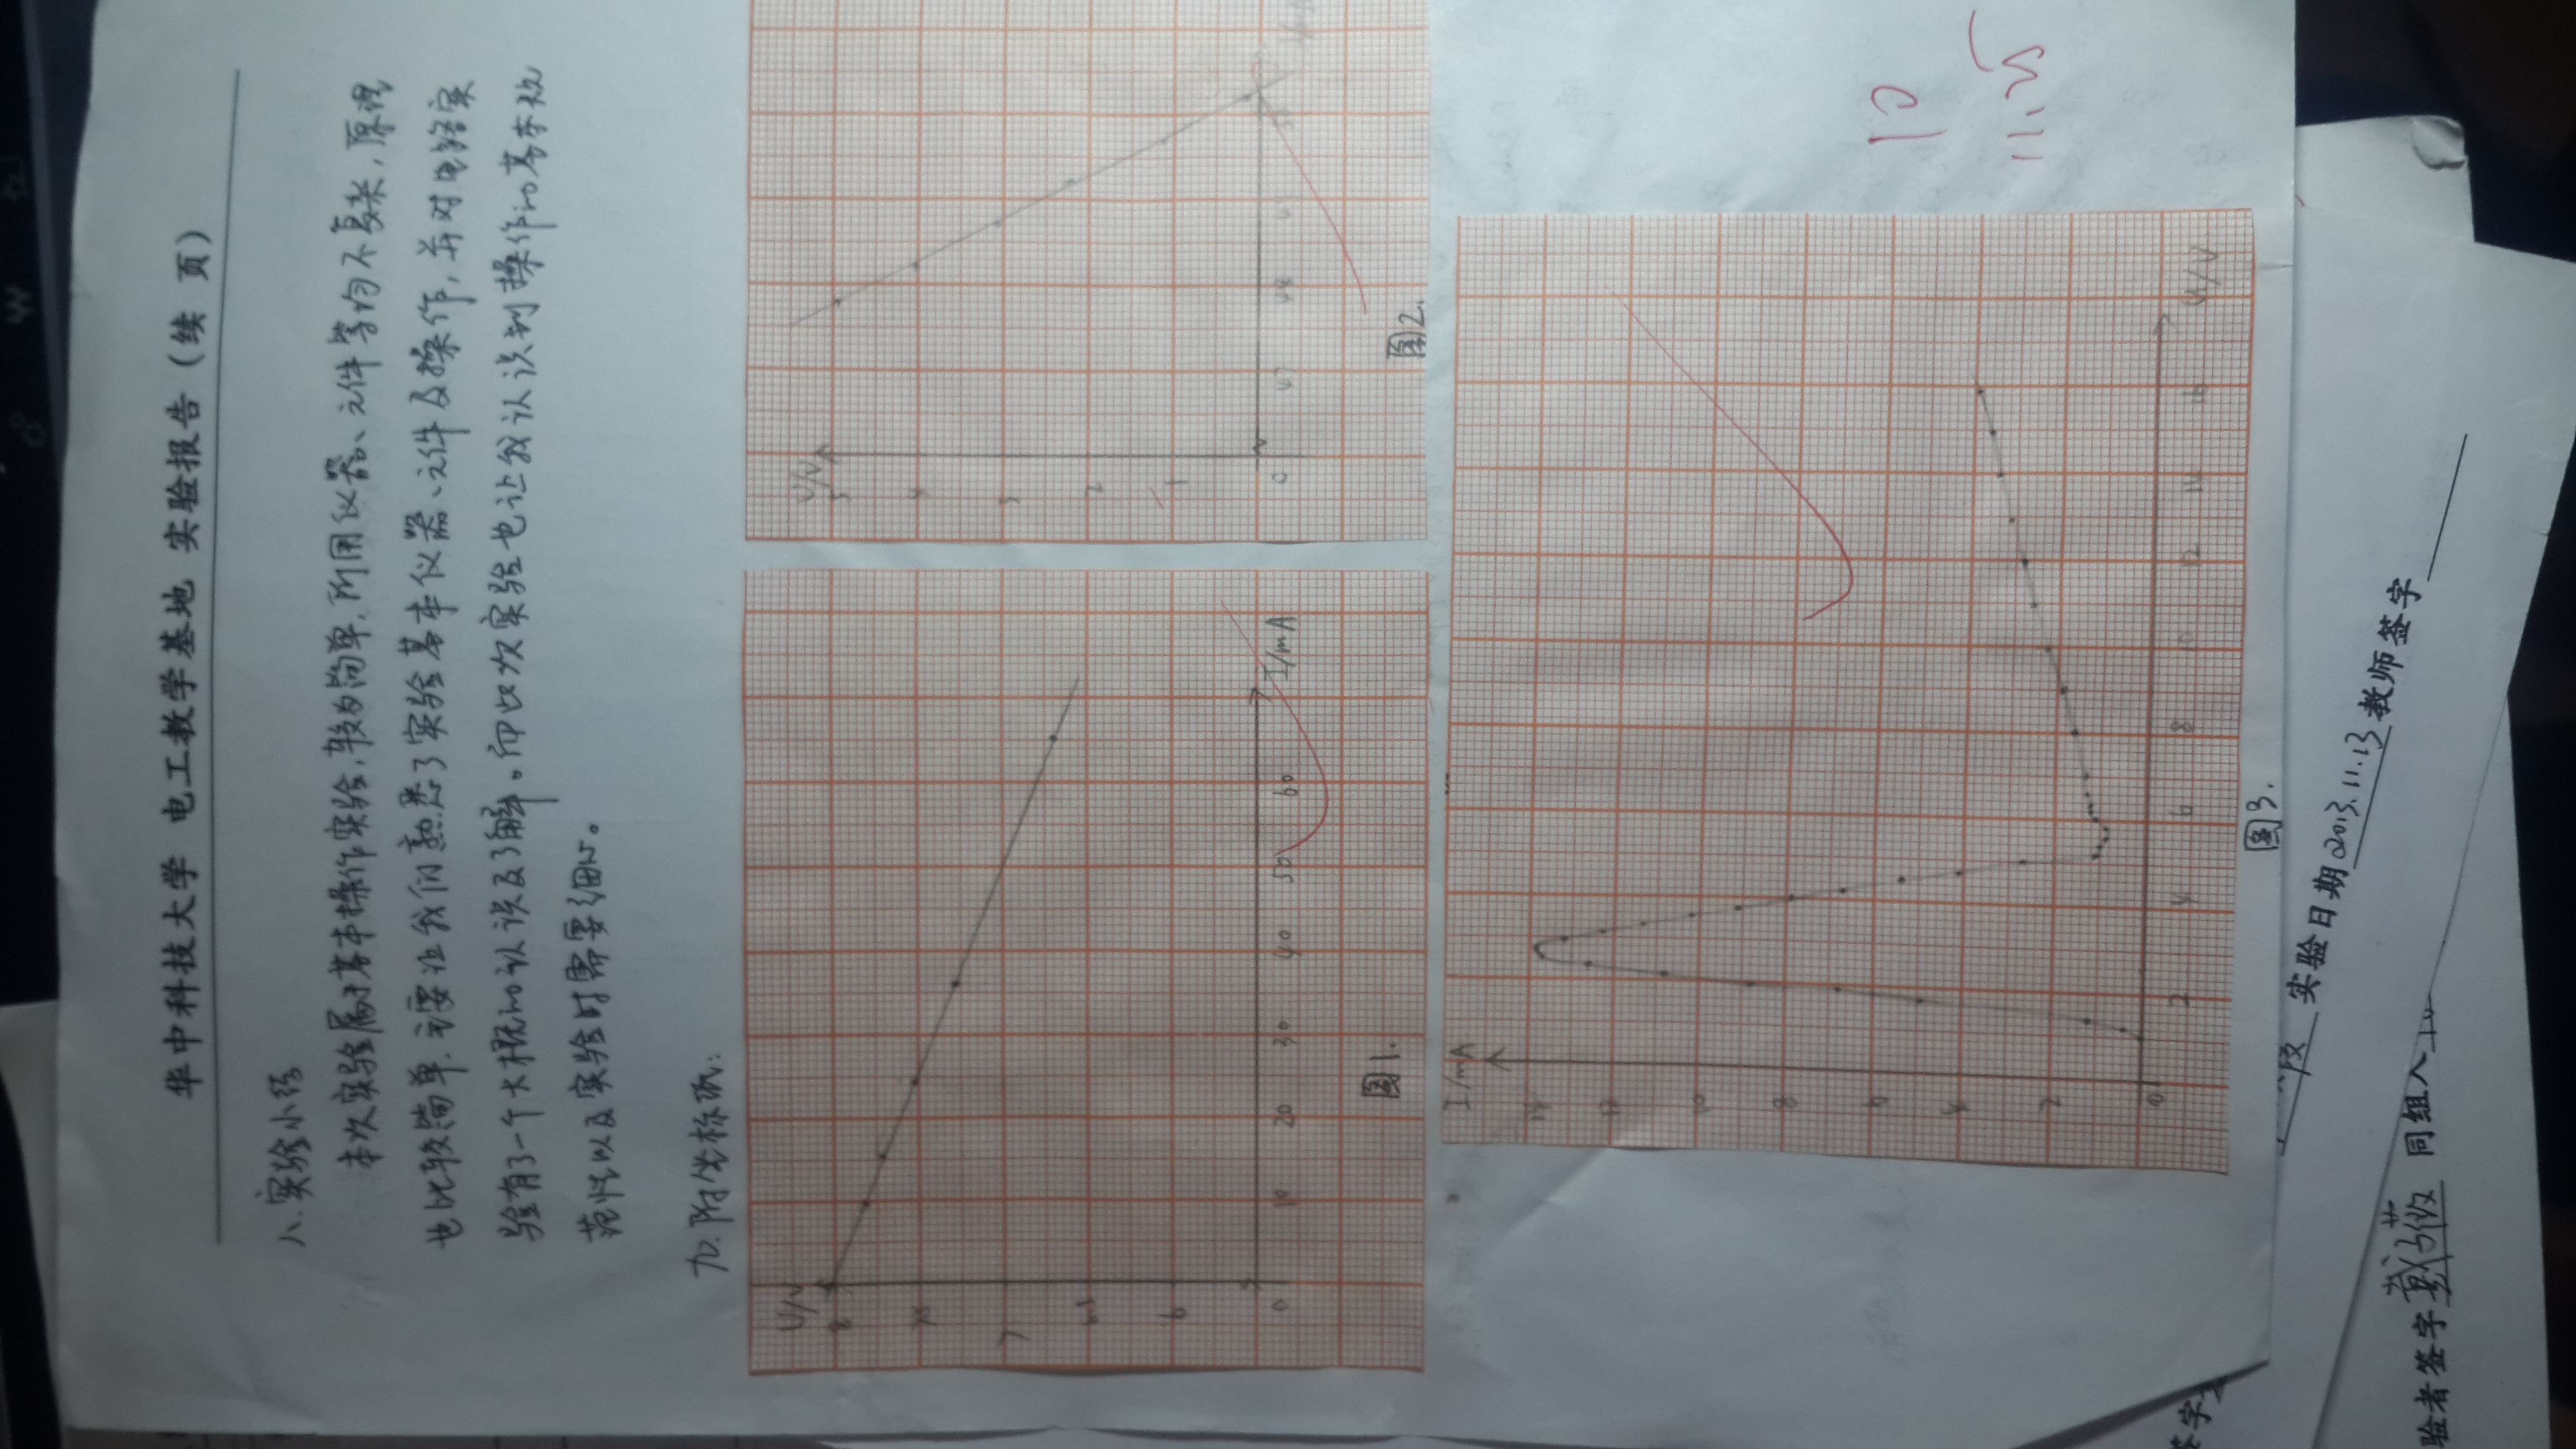 华中科技大学 电工教学基地 实验报告（续 页）
八.实验小结
本次实验属于基本操作实验,较为简单,所用仪器、元件等均不复杂,原理
也比较简单,主要让我们熟悉了实验基本仪器、元件及操作,并对电路实
验有了一个大概的认识及了解。而此次实验也让我认识到操作的基本规
范性以及实验时需要细心。
九.附坐标纸:
U/V
8
7.5
7
6.5
6
0 10 20 30 40 50 60 I/mA
图1.
U/V
5
4
3
2
1
0 47 48 49 50
图2.
I/mA
14
12
10
8
6
4
2
0 2 4 6 8 10 12 14 16 U/V
图3.
10
11.25
签字
段 实验日期 2013.11.13 教师签字
验者签字 戴子薇 同组人